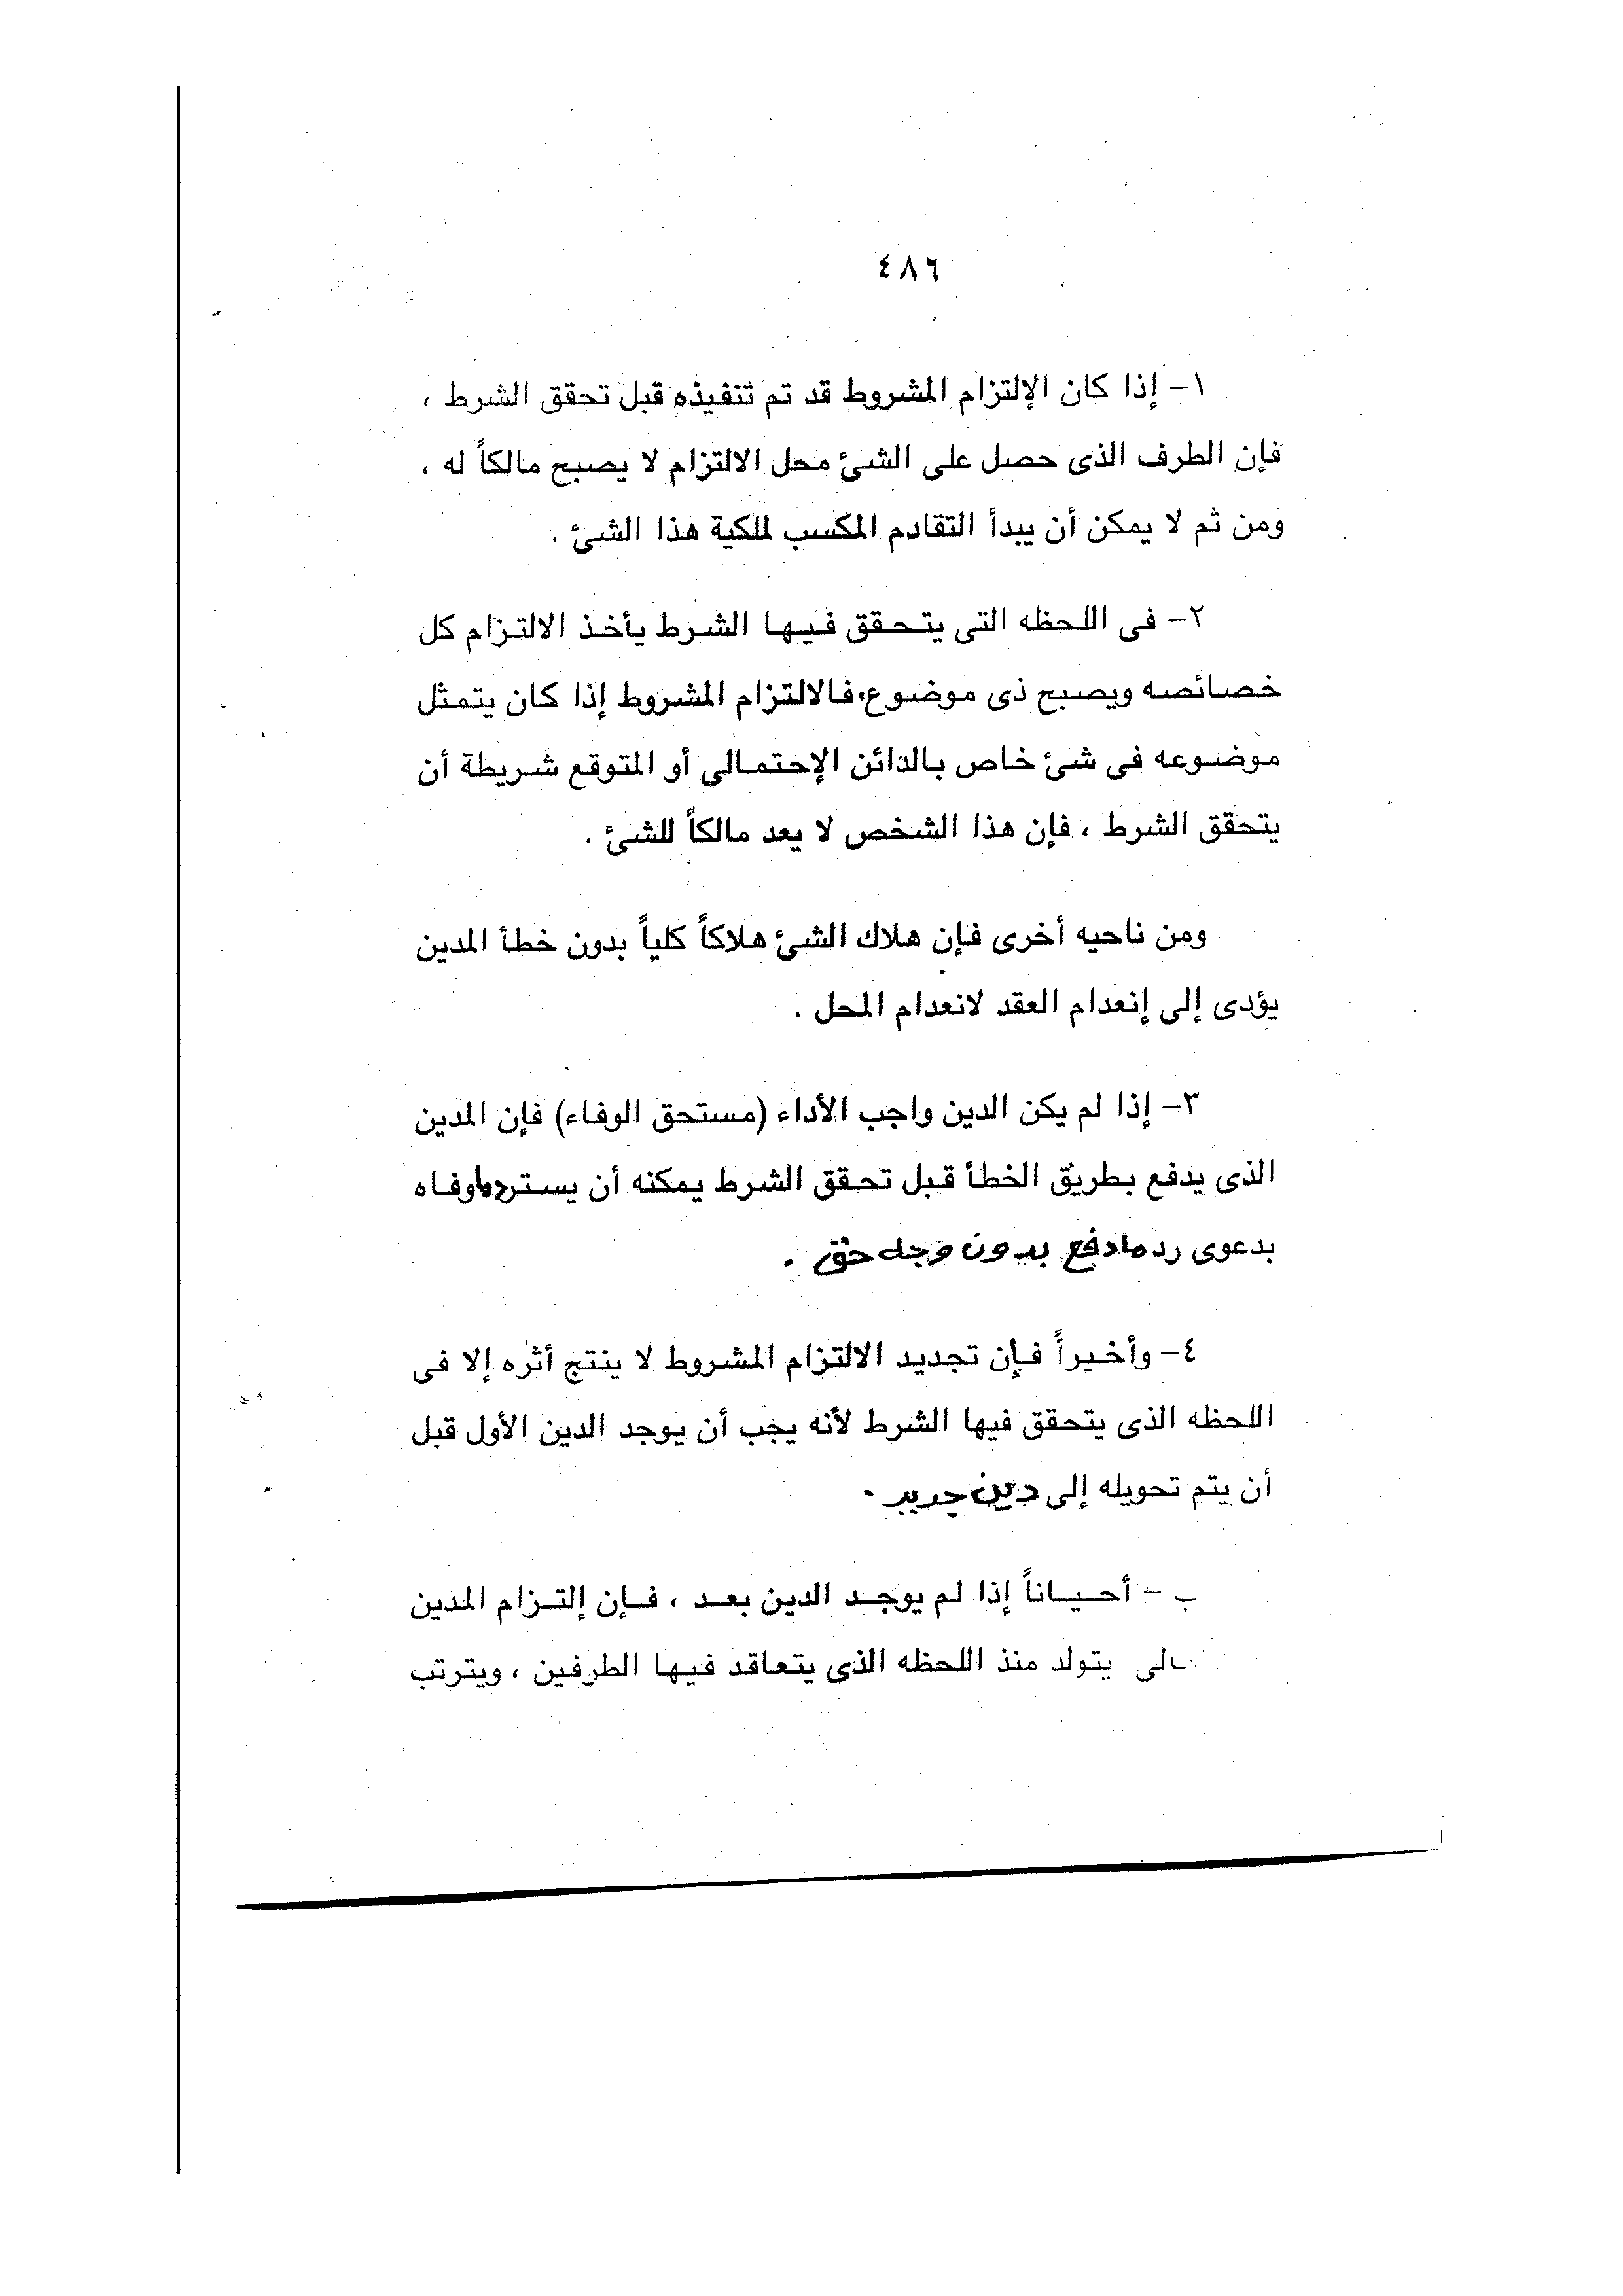 ٤٨٦
١- إذا كان الإلتزام المشروط قد تم تنفيذه قبل تحقق الشرط ،
فإن الطرف الذى حصل على الشئ محل الالتزام لا يصبح مالكاً له ،
ومن ثم لا يمكن أن يبدأ التقادم المكسب لملكية هذا الشئ .
٢- فى اللحظه التى يتحقق فيها الشرط يأخذ الالتزام كل
خصائصه ويصبح ذى موضوع، فالالتزام المشروط إذا كان يتمثل
موضوعه فى شئ خاص بالدائن الإحتمالى أو المتوقع شريطة أن
يتحقق الشرط ، فإن هذا الشخص لا يعد مالكاً للشئ .
ومن ناحيه أخرى فإن هلاك الشئ هلاكاً كلياً بدون خطأ المدين
يؤدى إلى إنعدام العقد لانعدام المحل .
٣- إذا لم يكن الدين واجب الأداء (مستحق الوفاء) فإن المدين
الذى يدفع بطريق الخطأ قبل تحقق الشرط يمكنه أن يسترد ما وفاه
بدعوى رد ما دفع بدون وجه حق .
٤- وأخيراً فإن تجديد الالتزام المشروط لا ينتج أثره إلا فى
اللحظه الذى يتحقق فيها الشرط لأنه يجب أن يوجد الدين الأول قبل
أن يتم تحويله إلى دين جديد .
ب - أحياناً إذا لم يوجد الدين بعد ، فإن إلتزام المدين
يتولد منذ اللحظه الذى يتعاقد فيها الطرفين ، ويترتب